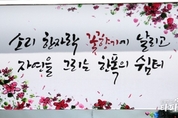 소리 한자락 갈향기에 날리고
자연을 그리는 한폭의 쉼터